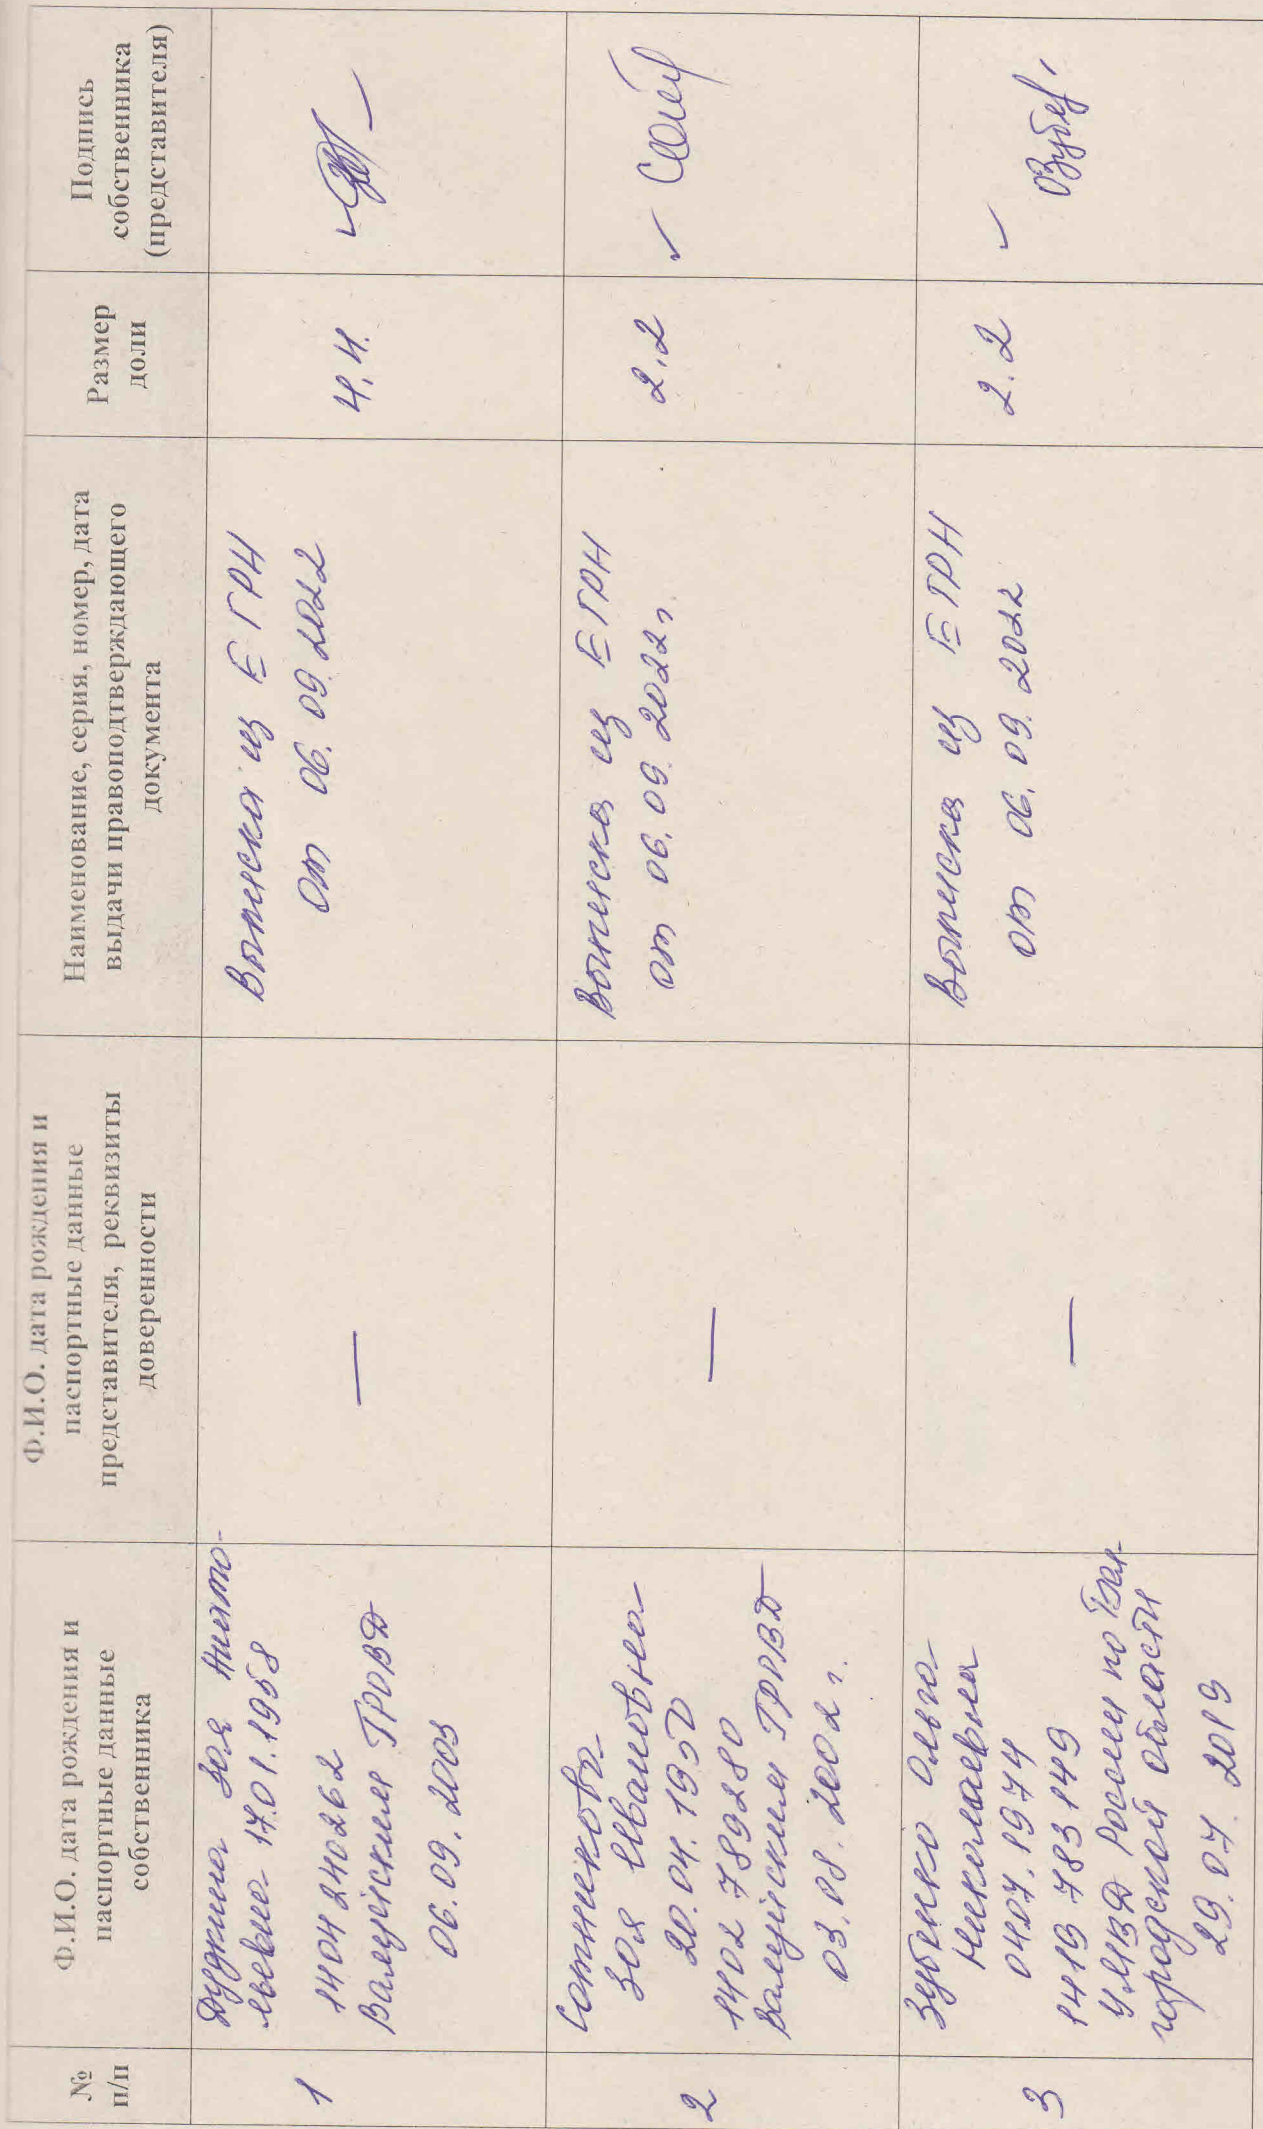 №
п/п
Ф.И.О. дата рождения и
паспортные данные
собственника
Ф.И.О. дата рождения и
паспортные данные
представителя, реквизиты
доверенности
Наименование, серия, номер, дата
выдачи правоподтверждающего
документа
Размер
доли
Подпись
собственника
(представителя)
1
Дудкина Зоя Анато-
льевна 17.01.1958
1404 240262
Валуйским ГРОВД
06.09.2003
—
Выписка из ЕГРН
от 06.09.2022
4.4.
2
Сотникова
Зоя Ивановна
20.04.1950
1402 789280
Валуйским ГРОВД
03.08.2002 г.
—
Выписка из ЕГРН
от 06.09.2022 г
2.2
3
Зубенко Ольга
Николаевна
04.07.1974
1419 783149
УМВД России по Бел-
городской области
29.07.2019
—
Выписка из ЕГРН
от 06.09.2022
2.2